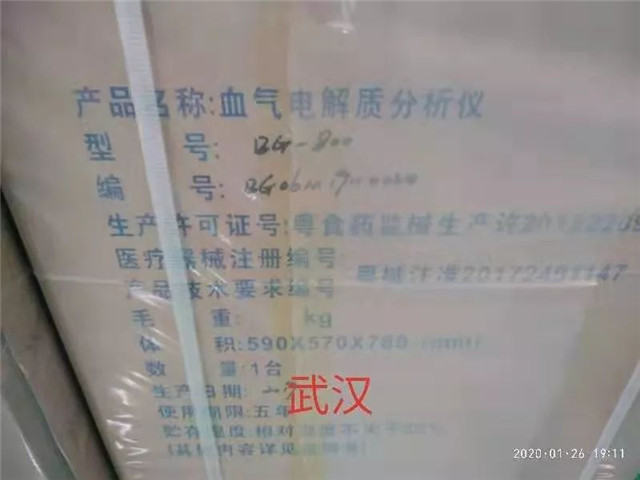 产品名称:血气电解质分析仪
型 号: BG-800
编 号:
生产许可证号:粤食药监械生产许2012220
医疗器械注册编号
产品技术要求编号
粤械注准20172401147
毛 重: kg
体 积:590X570X780 (mm)
数 量:1台
生产日期:
使用期限:五年
贮存湿度:相对湿度不大于
(其他内容详见说明书)
武汉
2020·01·26 19:11